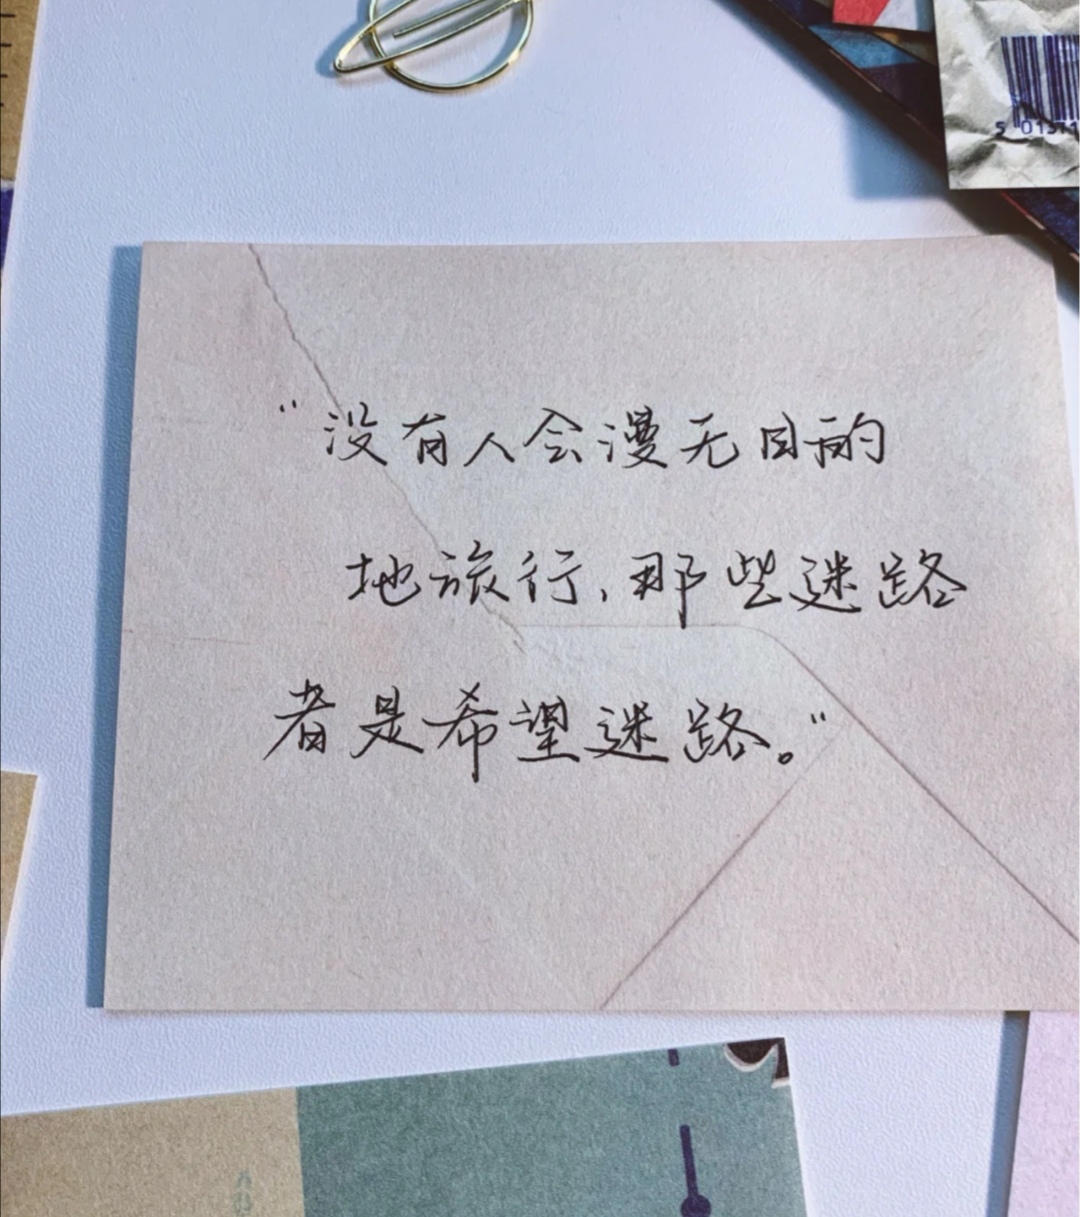 “没有人会漫无目的
地旅行，那些迷路
者是希望迷路。”